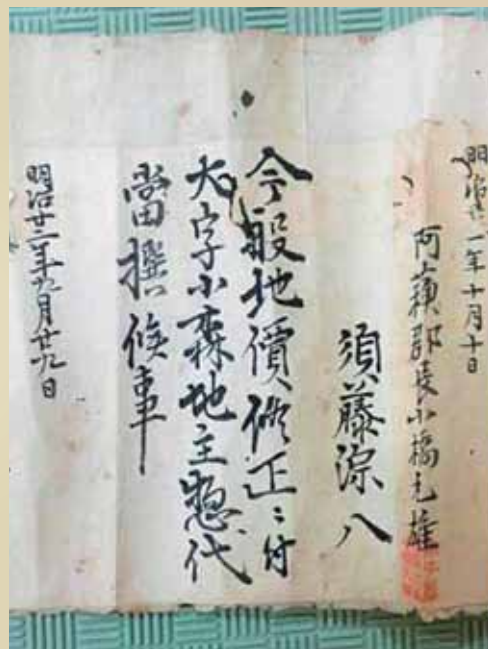 明治廿一年十月十日
阿蘓郡長小橋元雄
須藤 八
今般地價修正ニ付
大字小森地主惣代
當撰候事
明治廿二年九月廿九日